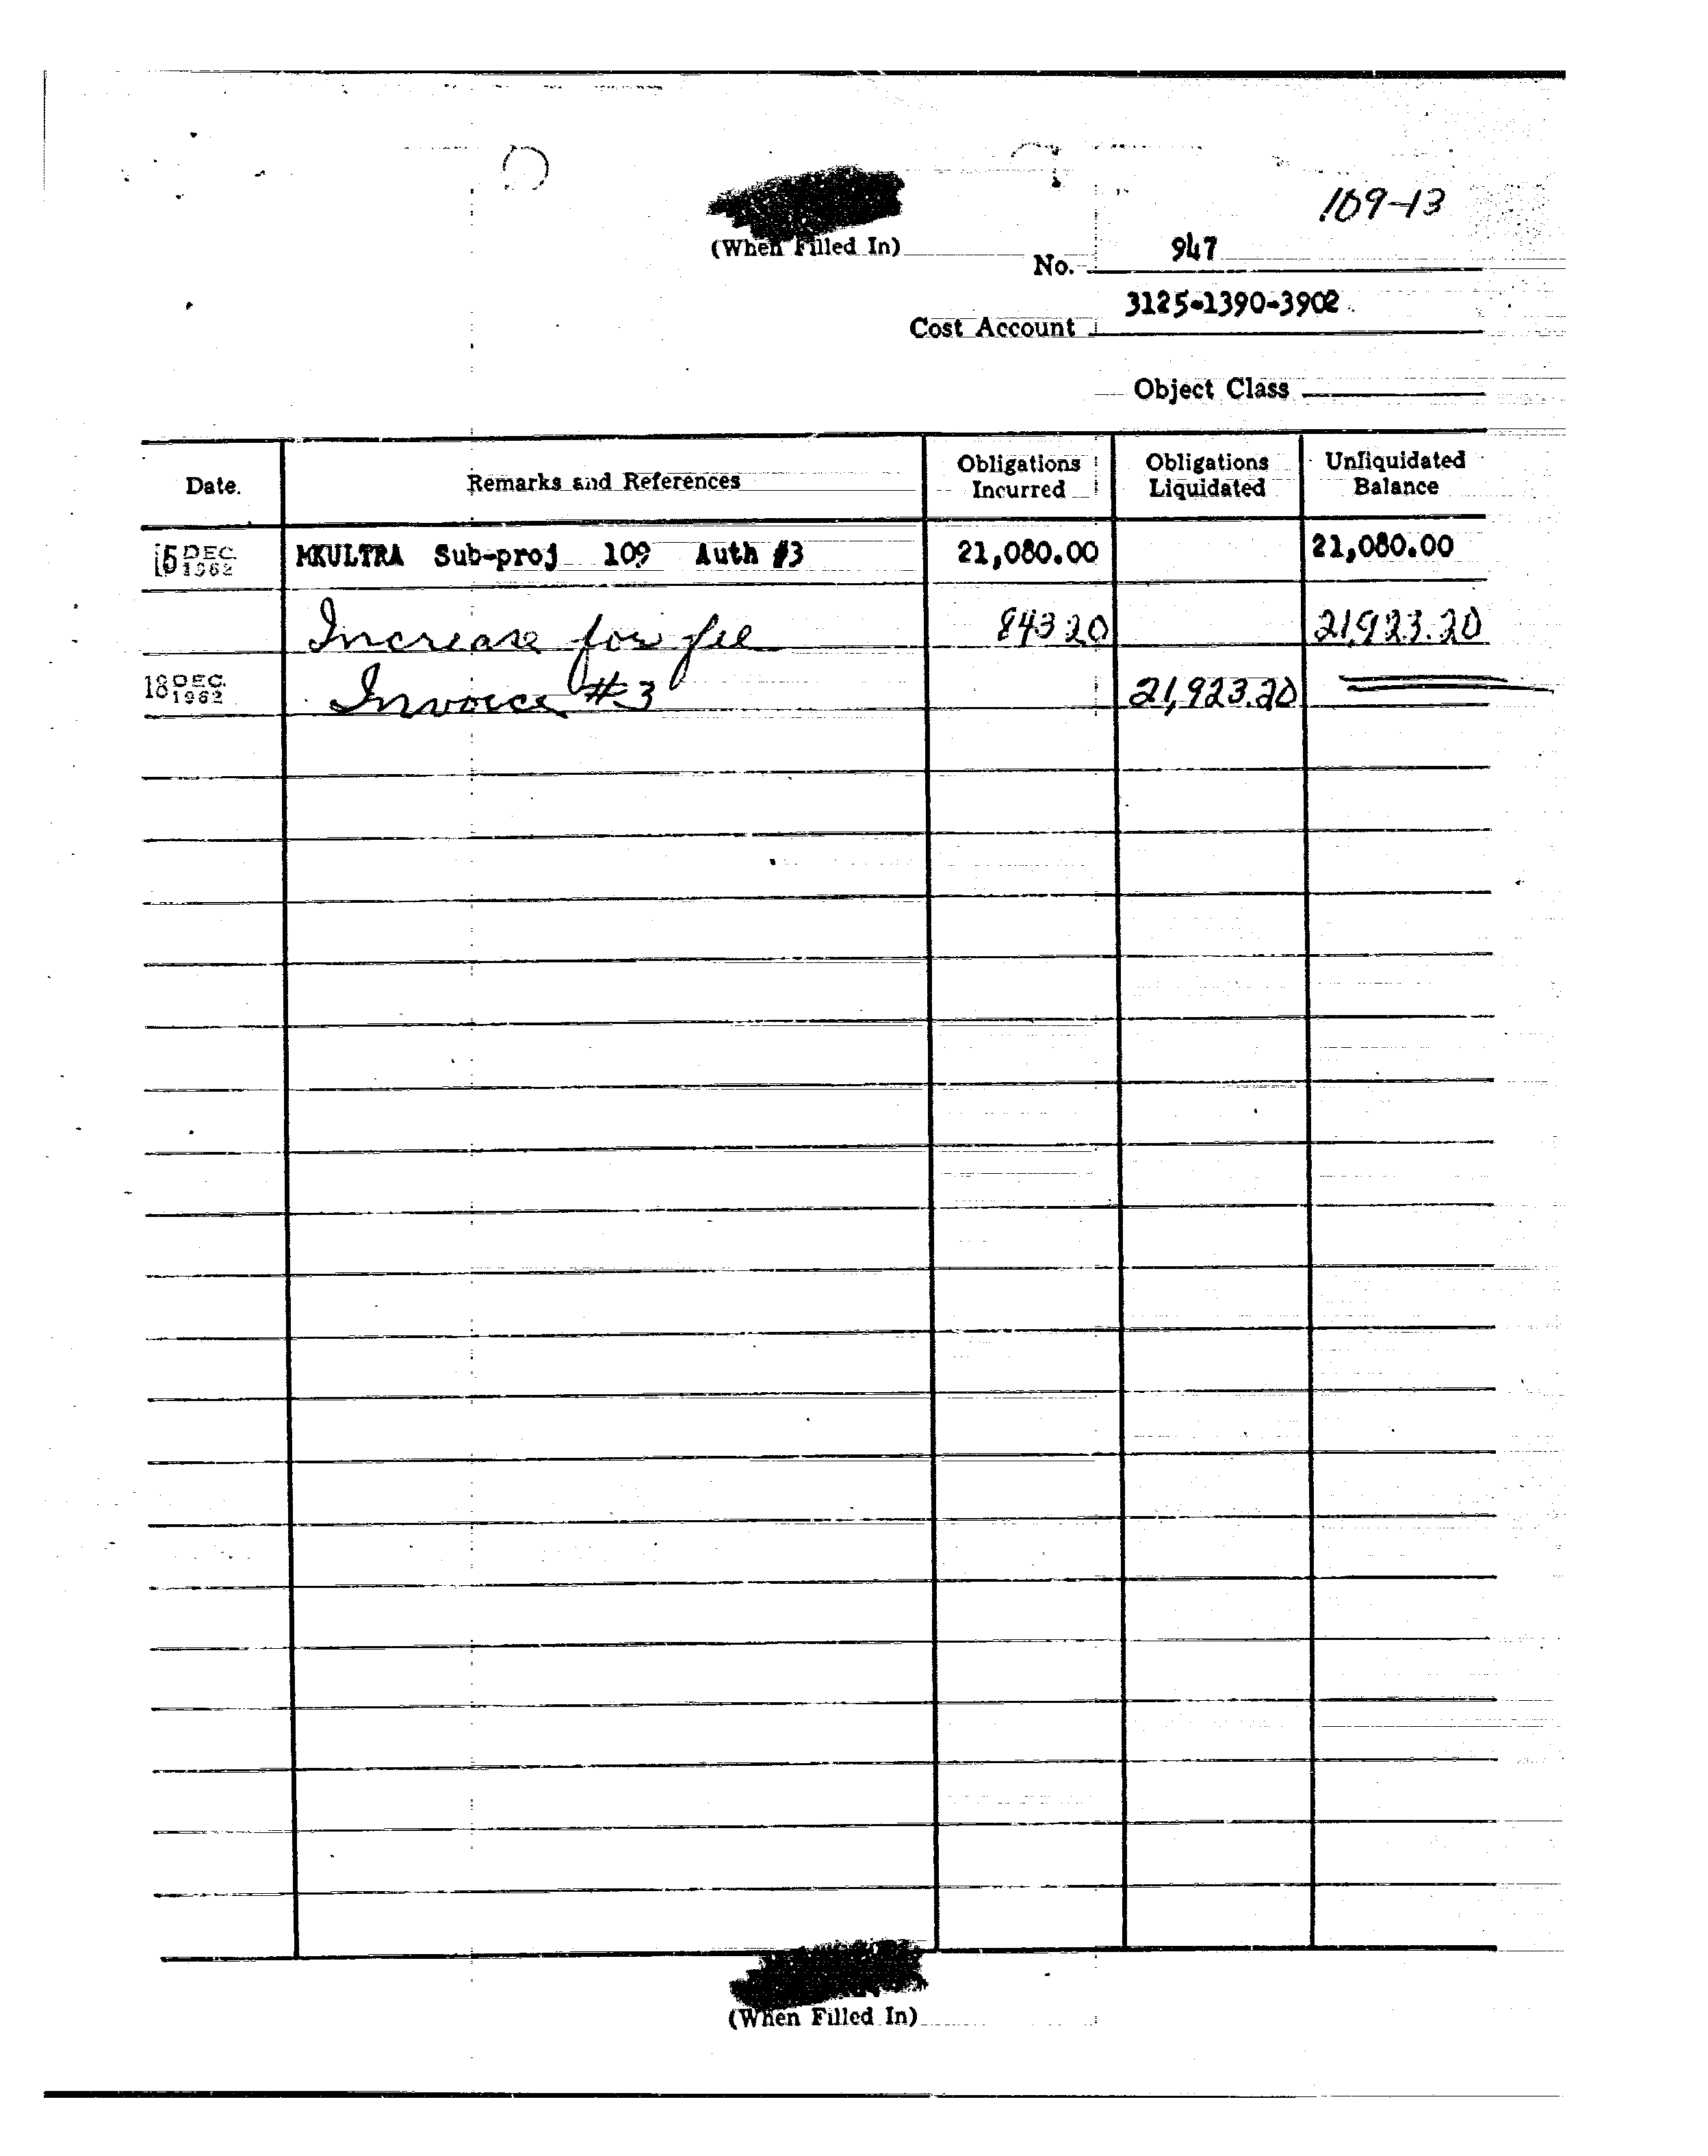 109-13
(When Filled In)
No. 947
Cost Account 3125-1390-3902
Object Class
Date. Remarks and References Obligations Incurred Obligations Liquidated Unliquidated Balance
15 DEC. 1962 MKULTRA Sub-proj 109 Auth #3 21,080.00 21,080.00
Increase for fee 843 20 21,923.20
18 DEC. 1962 Invoice #3 21,923.20
(When Filled In)